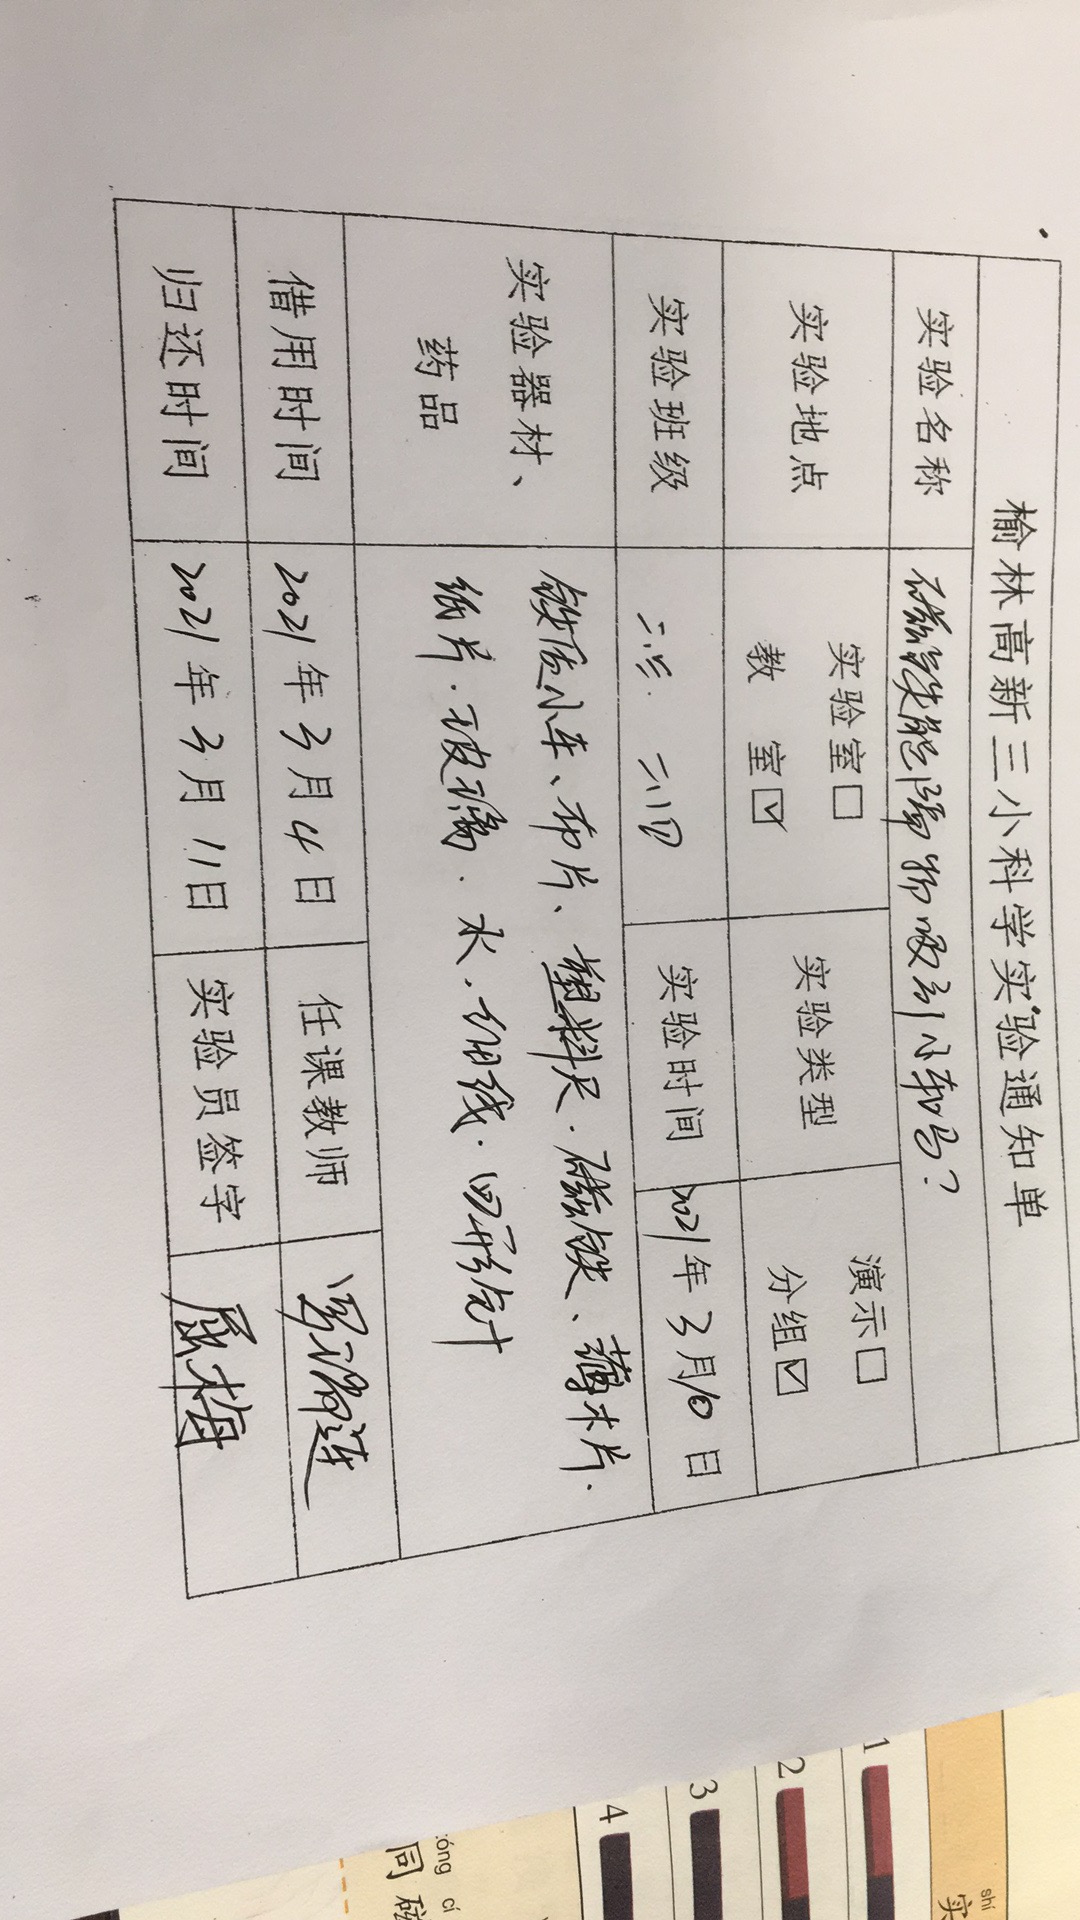 榆林高新三小科学实验通知单
实验名称 磁铁能隔物吸引小车吗?
实验地点 实验室□ 教 室☑ 实验类型 演示□ 分组☑
实验班级 二 二、四 实验时间 2021年3月10日
实验器材、药品 铁质小车、布片、塑料尺.磁铁、薄木片.
纸片.玻璃.水.细线.回形针
借用时间 2021年3月4日 任课教师
归还时间 2021年3月11日 实验员签字 梅
1
2
3
4
shí
实
cí
同 磁